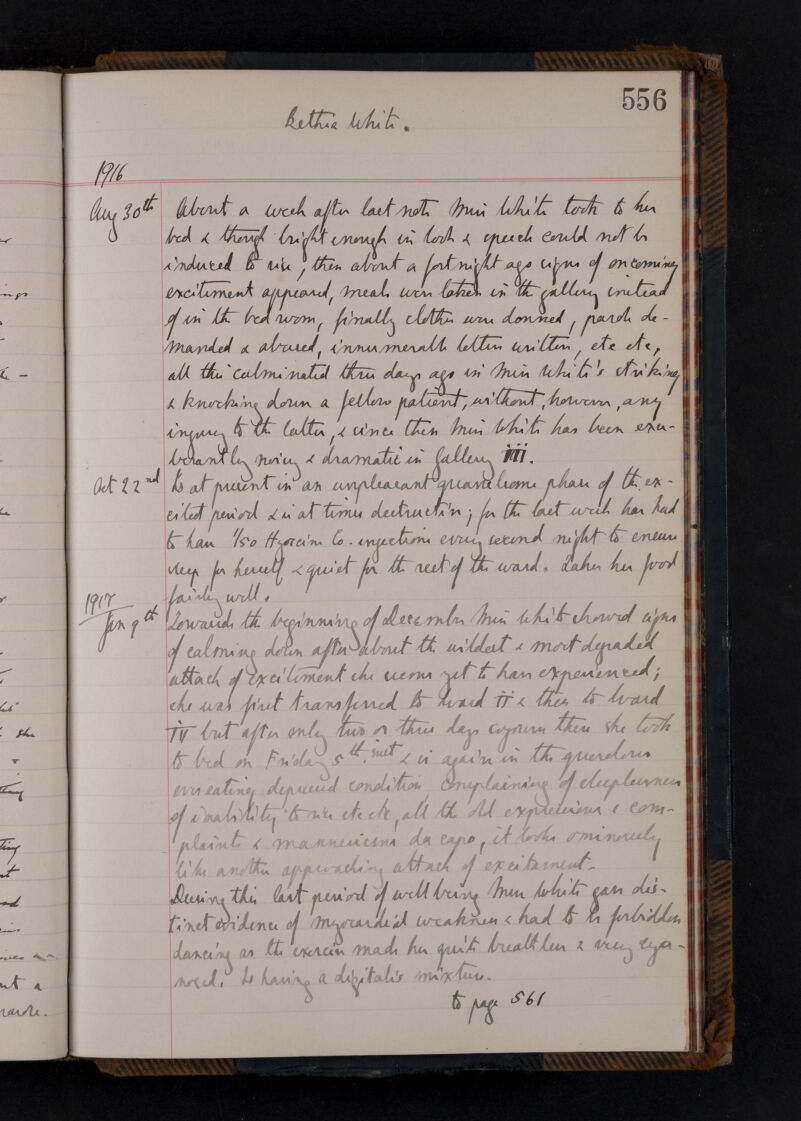 556
Bethia White.
1916
Aug 30th About a week after last note Miss White took to her
bed & though bright enough in look & speech could not be
induced to rise, then about a fortnight ago signs of oncoming
excitement appeared, meals were taken in the gallery instead
of in the bedroom, finally clothes were donned, parole de-
manded & abused, innumerable letters written, etc etc,
all this culminated three days ago in Miss White's striking
& knocking down a fellow patient, without, however, any
injury to the latter, & since then Miss White has been exu-
berantly noisy & dramatic in Gallery iii.
Oct 22nd Is at present in an unpleasant quarrelsome phase of the ex-
cited period & is at times destructive; for the last week has had
to have 1/50 Hyoscine Co. injections every second night to ensure
sleep for herself & quiet for the rest of the ward. Takes her food
fairly well.
1917
Jan 9th Towards the beginning of December Miss White showed signs
of calming down after about the wildest & most degraded
attack of excitement she seems yet to have experienced;
she was first transferred to Ward ii & then to Ward
IV but after only two or three days sojourn there she took
to bed on Friday 5th inst & is again in the querulous
overeating depressed condition, complaining of sleeplessness
of inability to rise etc etc, all the old expressions & com-
plaints & mannerisms da capo, it looks ominously
like another approaching attack of excitement.
During this last period of well being Miss White gave dis-
tinct evidence of myocardial weakness & had to be forbidden
dancing as the exercise made her quite breathless & very cya-
nosed. Is having a digitalis mixture.
to page 561